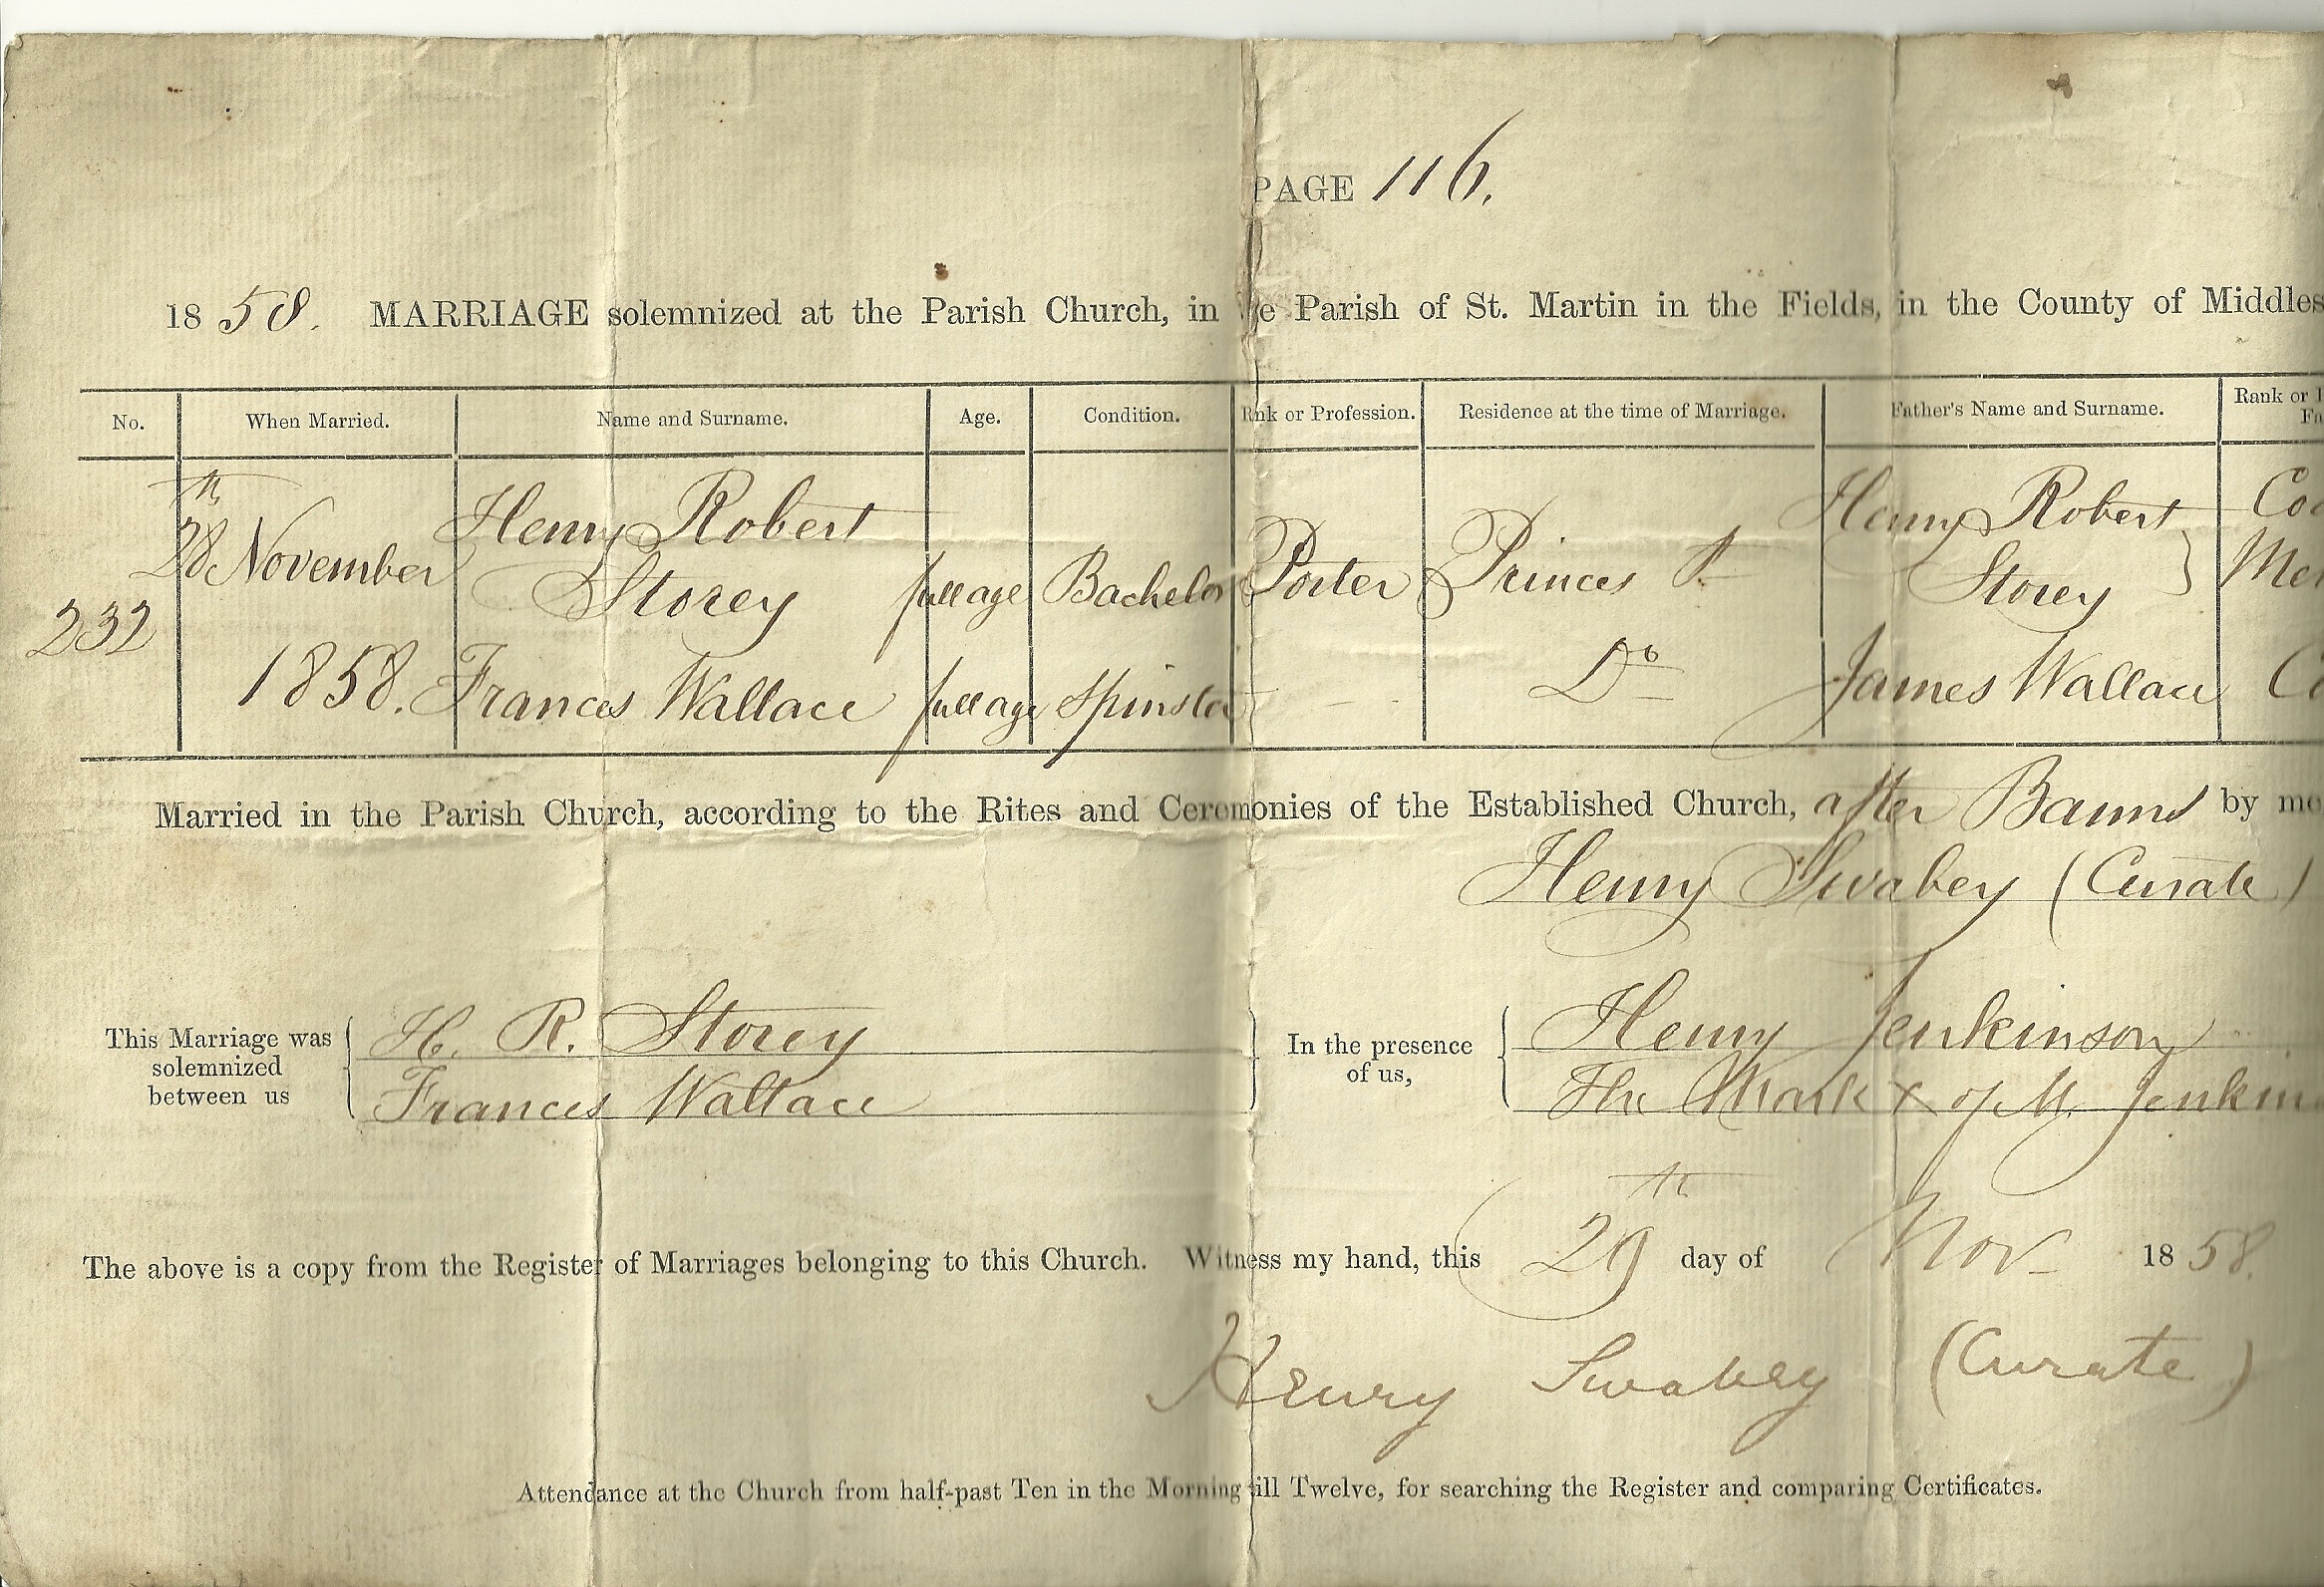 PAGE 116.
1858. MARRIAGE solemnized at the Parish Church, in the Parish of St. Martin in the Fields, in the County of Middles
No. When Married. Name and Surname. Age. Condition. Rank or Profession. Residence at the time of Marriage. Father's Name and Surname. Rank or
Fa
232 28th November 1858. Henry Robert Storey full age Bachelor Porter Princes St Henry Robert Storey } Coa Mer
Frances Wallace full age Spinster — Do James Wallace
Married in the Parish Church, according to the Rites and Ceremonies of the Established Church, after Banns by me
Henry Swabey (Curate)
This Marriage was solemnized between us { H. R. Storey
Frances Wallace }
In the presence of us, { Henry Jenkinson
The Mark X of M. Jenkin
The above is a copy from the Register of Marriages belonging to this Church. Witness my hand, this 29th day of Nov 1858.
Henry Swabey (Curate)
Attendance at the Church from half-past Ten in the Morning till Twelve, for searching the Register and comparing Certificates.